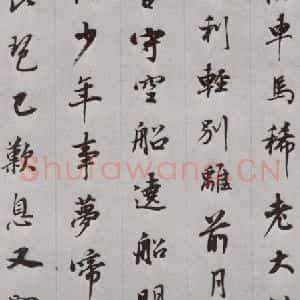 車馬稀老大
利輕別離前月
守空船遶船
少年事夢啼
琶已歎息又
Shufawang.CN